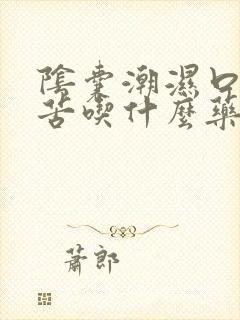 陰囊潮濕口
苦喫什麼藥
蕭郎